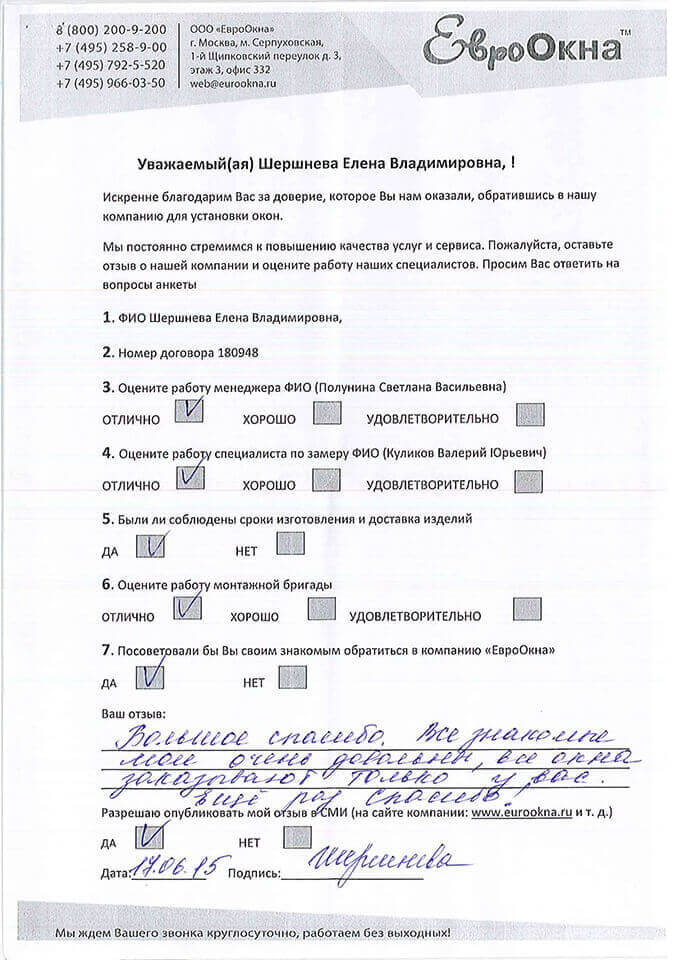 8 (800) 200-9-200
+7 (495) 258-9-00
+7 (495) 792-5-520
+7 (495) 966-03-50
ООО «ЕвроОкна»
г. Москва, м. Серпуховская,
1-й Щипковский переулок д. 3,
этаж 3, офис 332
web@eurookna.ru
ЕвроОкна™
Уважаемый(ая) Шершнева Елена Владимировна, !
Искренне благодарим Вас за доверие, которое Вы нам оказали, обратившись в нашу
компанию для установки окон.
Мы постоянно стремимся к повышению качества услуг и сервиса. Пожалуйста, оставьте
отзыв о нашей компании и оцените работу наших специалистов. Просим Вас ответить на
вопросы анкеты
1. ФИО Шершнева Елена Владимировна,
2. Номер договора 180948
3. Оцените работу менеджера ФИО (Полунина Светлана Васильевна)
ОТЛИЧНО ХОРОШО УДОВЛЕТВОРИТЕЛЬНО
4. Оцените работу специалиста по замеру ФИО (Куликов Валерий Юрьевич)
ОТЛИЧНО ХОРОШО УДОВЛЕТВОРИТЕЛЬНО
5. Были ли соблюдены сроки изготовления и доставка изделий
ДА НЕТ
6. Оцените работу монтажной бригады
ОТЛИЧНО ХОРОШО УДОВЛЕТВОРИТЕЛЬНО
7. Посоветовали бы Вы своим знакомым обратиться в компанию «ЕвроОкна»
ДА НЕТ
Ваш отзыв:
Большое спасибо. Все знакомые
мои очень довольны, все окна
заказывают только у вас.
Ещё раз спасибо!
Разрешаю опубликовать мой отзыв в СМИ (на сайте компании: www.eurookna.ru и т. д.)
ДА НЕТ
Дата: 17.06.15 Подпись: Шершнева
Мы ждем Вашего звонка круглосуточно, работаем без выходных!